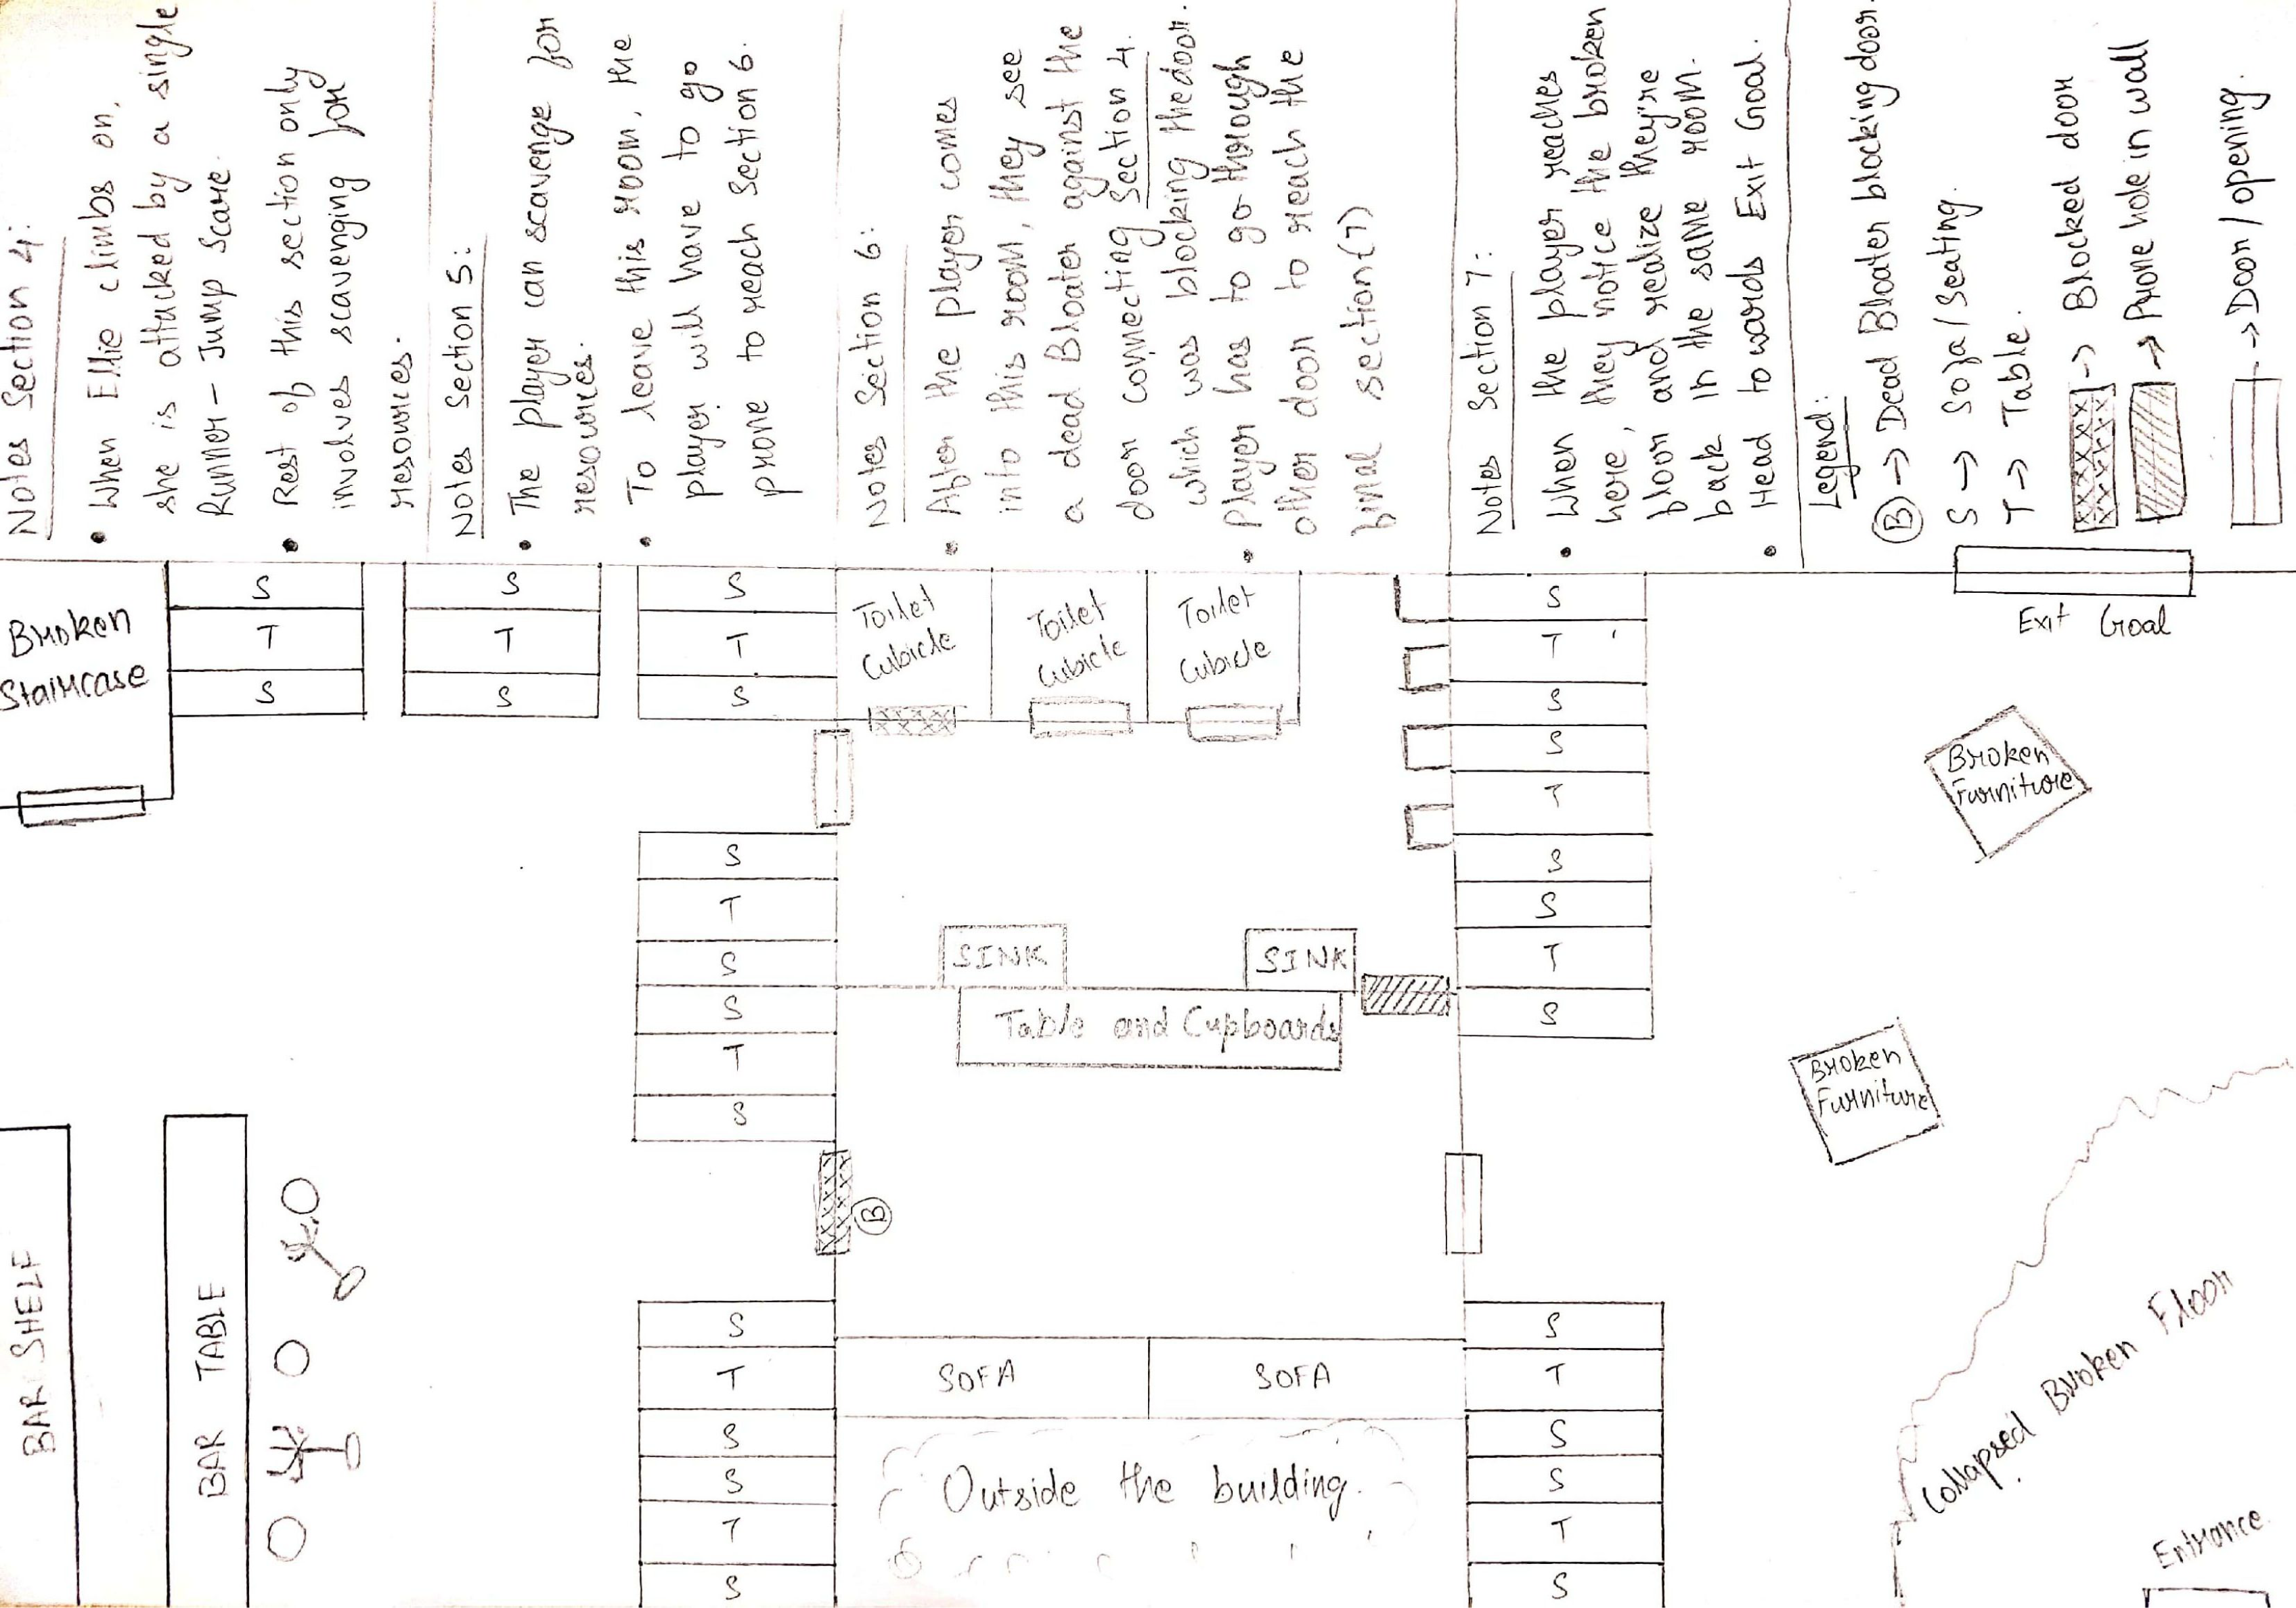 Notes Section 4:
• When Ellie climbs on,
she is attacked by a single
Runner - Jump Scare.
• Rest of this section only
involves scavenging for
resources.
Notes Section 5:
• The player can scavenge for
resources.
• To leave this room, the
player will have to go
prone to reach Section 6.
Notes Section 6:
• After the player comes
into this room, they see
a dead Bloater against the
door connecting Section 4.
which was blocking the door.
• Player has to go through
other door to reach the
final section(7)
Notes Section 7:
• When the player reaches
here, they notice the broken
floor and realize they're
back in the same room.
• Head towards Exit Goal.
Legend:
(B) → Dead Bloater blocking door.
S → Sofa/Seating.
T → Table.
→ Blocked door
→ Prone hole in wall
→ Door/opening.
Broken
Staircase
S
T
S
S
T
S
S
T
S
Toilet
Cubicle
Toilet
Cubicle
Toilet
Cubicle
S
T
S
S
T
S
S
T
S
Exit Goal
Broken
Furniture
S
T
S
S
T
S
SINK
SINK
Table and Cupboards
Broken
Furniture
BAR SHELF
BAR TABLE
B
S
T
S
S
T
S
SOFA
SOFA
Outside the building.
S
T
S
S
T
S
Collapsed Broken Floor
Entrance